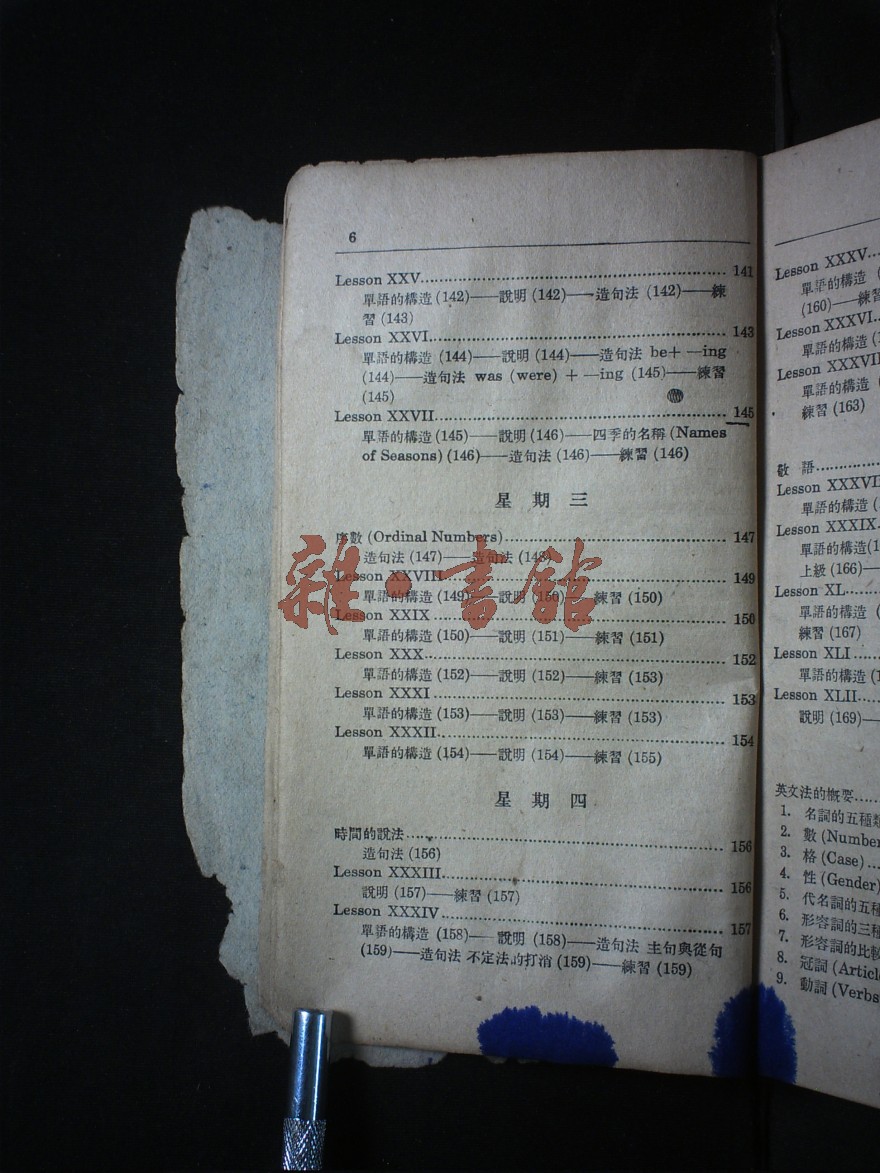 6
Lesson XXV........ 141
單語的構造 (142)——說明 (142)——造句法 (142)——練
習 (143)
Lesson XXVI........ 143
單語的構造 (144)——說明 (144)——造句法 be+ —ing
(144)——造句法 was (were) + —ing (145)——練習
(145)
Lesson XXVII........ 145
單語的構造 (145)——說明 (146)——四季的名稱 (Names
of Seasons) (146)——造句法 (146)——練習 (146)
星期三
序數 (Ordinal Numbers)........ 147
造句法 (147)——造句法 (148)
Lesson XXVIII........ 149
單語的構造 (149)——說明 (150)——練習 (150)
Lesson XXIX........ 150
單語的構造 (150)——說明 (151)——練習 (151)
Lesson XXX........ 152
單語的構造 (152)——說明 (152)——練習 (153)
Lesson XXXI........ 153
單語的構造 (153)——說明 (153)——練習 (153)
Lesson XXXII........ 154
單語的構造 (154)——說明 (154)——練習 (155)
星期四
時間的說法........ 156
造句法 (156)
Lesson XXXIII........ 156
說明 (157)——練習 (157)
Lesson XXXIV........ 157
單語的構造 (158)——說明 (158)——造句法 主句與從句
(159)——造句法 不定法的打消 (159)——練習 (159)
雜·書館
Lesson XXXV...
單語的構造 (
(160)——練習
Lesson XXXVI...
單語的構造 (1
Lesson XXXVII
單語的構造 (
練習 (163)
敬語........
Lesson XXXVII
單語的構造 (
Lesson XXXIX...
單語的構造(1
上級 (166)—
Lesson XL........
單語的構造 (
練習 (167)
Lesson XLI ...
單語的構造 (1
Lesson XLII...
說明 (169)—
英文法的概要....
1. 名詞的五種類
2. 數 (Number
3. 格 (Case)...
4. 性 (Gender)
5. 代名詞的五種
6. 形容詞的三種
7. 形容詞的比較
8. 冠詞 (Article
9. 動詞 (Verbs